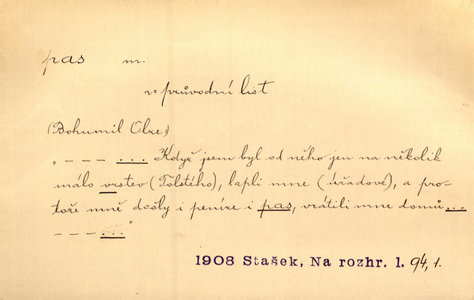 pas m.
v průvodní list
(Bohumil Obr.)
„ – – – ... Když jsem byl od něho jen na několik
málo vrstev (Tolstého), lapli mne (úřadové), a pro-
tože mně došly i peníze i pas, vrátili mne domů...
– – – ..."
1908 Stašek, Na rozhr. I. 94, 1.